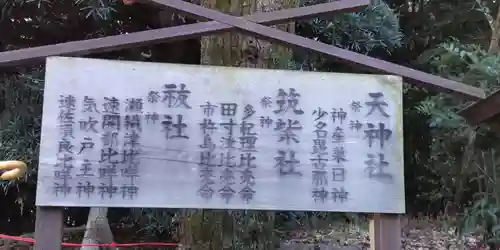 天神社
祭神
神産巣日神
少名毘古那神
筑柴社
祭神
多紀理比売命
田寸津比売命
市杵比売命
祓社
祭神
瀬織津比咩神
速開都比咩神
気吹戸主神
速佐須良比咩神